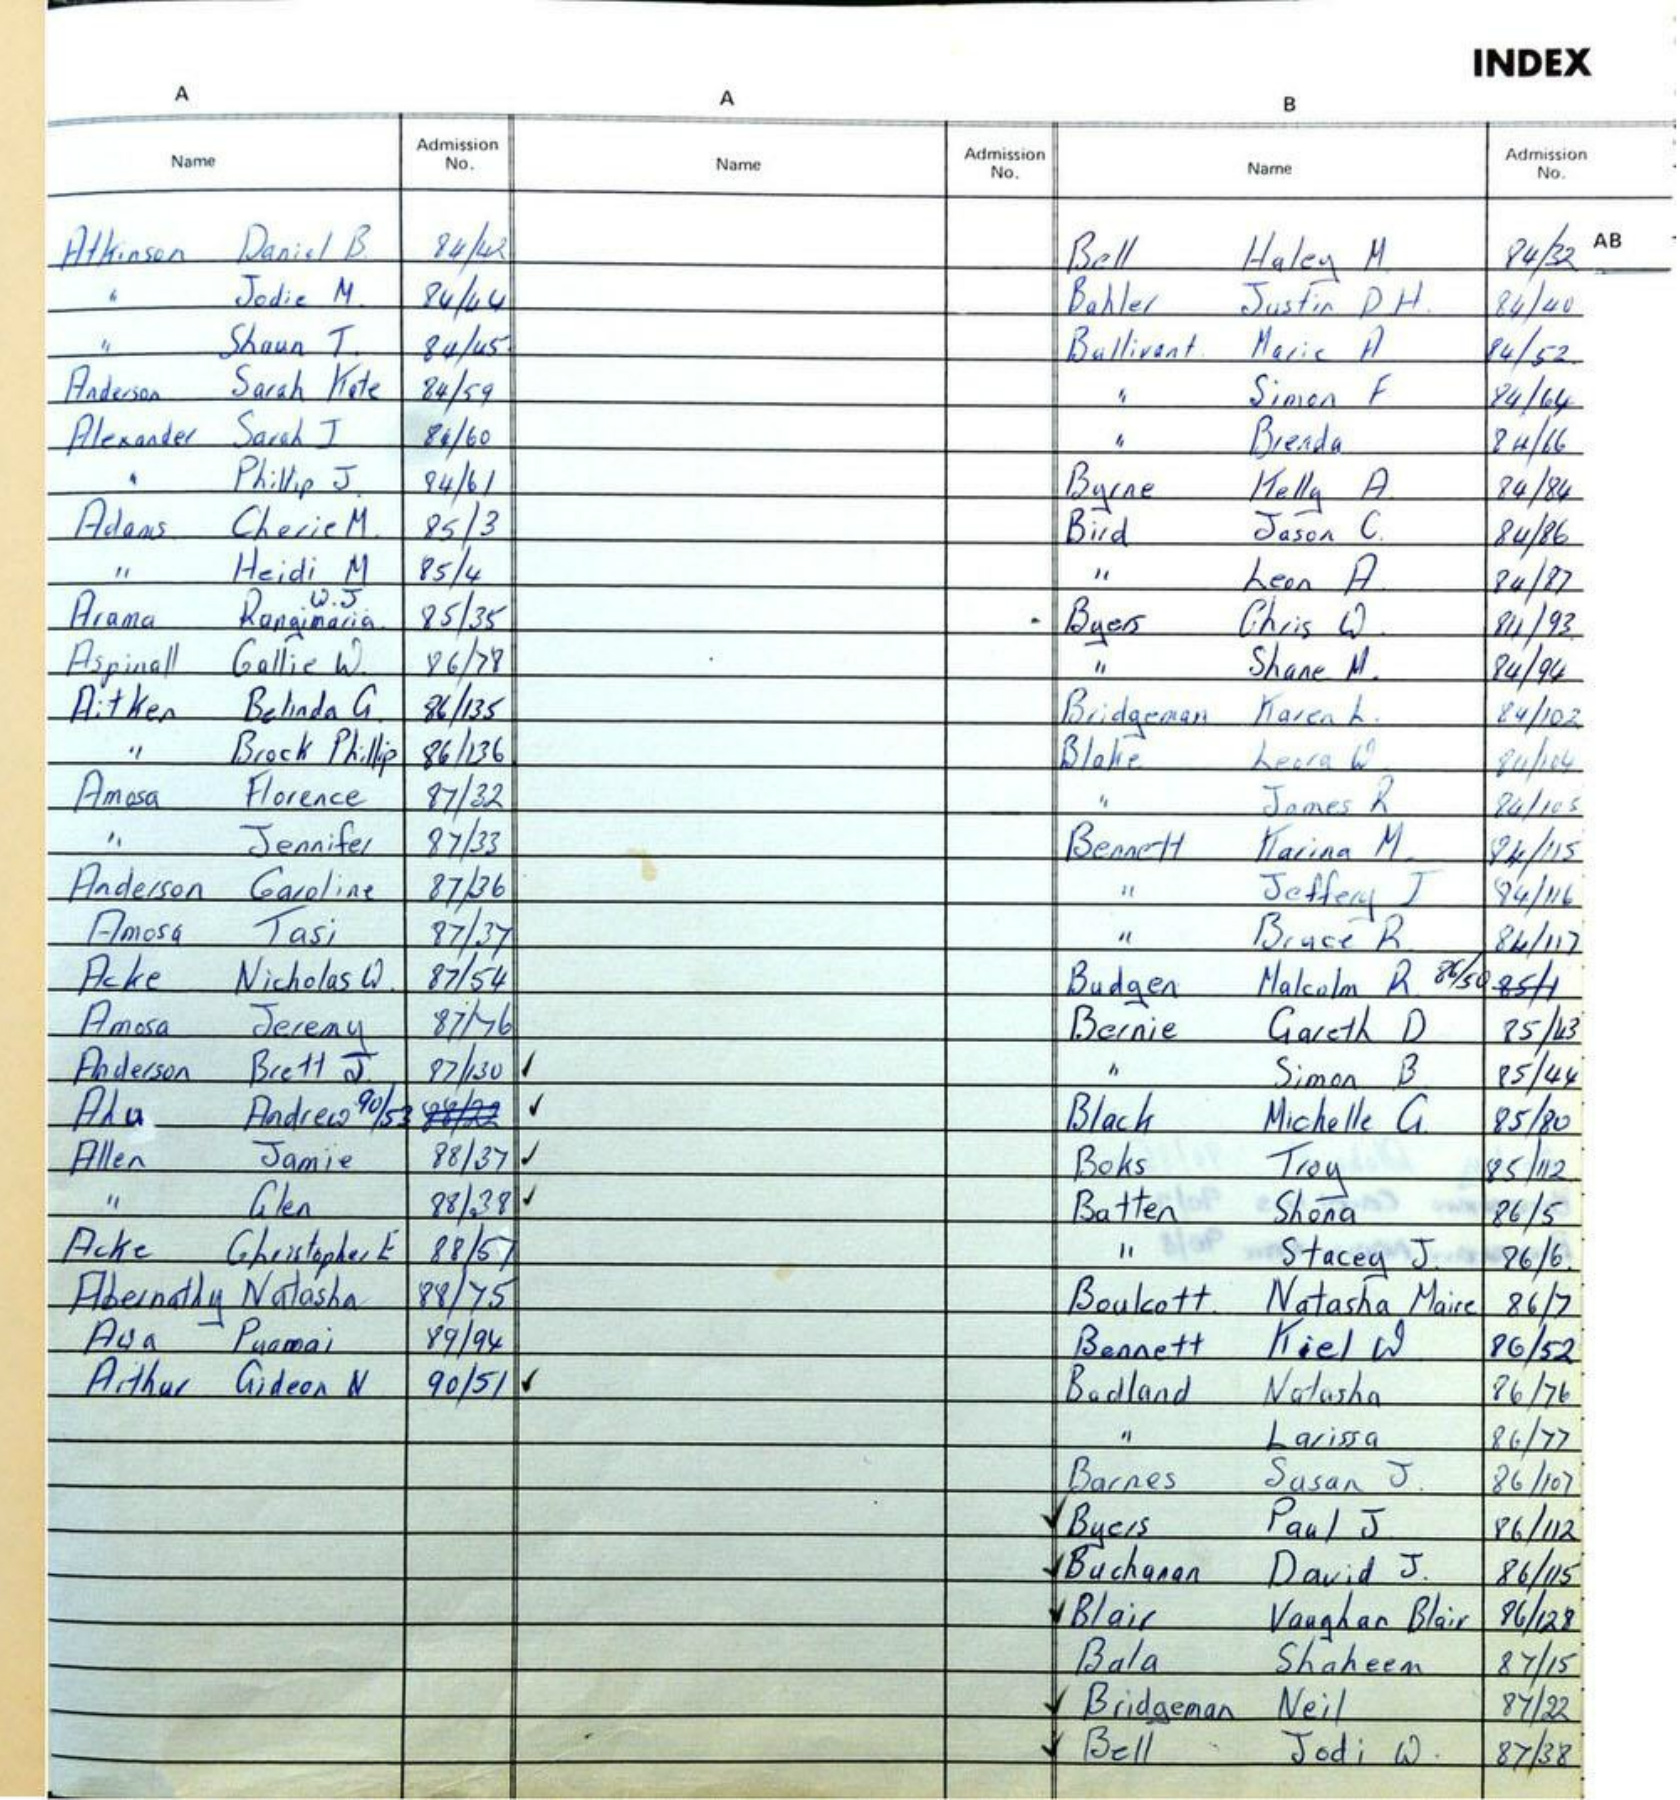 INDEX
A
Name Admission No.
Atkinson Daniel B. 84/42
" Jodie M. 84/44
" Shaun T. 84/45
Anderson Sarah Kate 84/59
Alexander Sarah J 84/60
" Phillip J. 84/61
Adams Cherie M. 85/3
" Heidi M 85/4
Arama Rangimaria W.J 85/35
Aspinall Callie W. 86/78
Aitken Belinda G. 86/135
" Brock Phillip 86/136
Amosa Florence 87/32
" Jennifer 87/33
Anderson Caroline 87/36
Amosa Tasi 87/37
Acke Nicholas W. 87/54
Amosa Jeremy 87/76
Anderson Brett J. 87/130 ✓
Ahu Andrew 90/53 88/22 ✓
Allen Jamie 88/37 ✓
" Glen 88/38 ✓
Acke Christopher E 88/57
Abernathy Natasha 88/75
Ava Puamai 89/94
Arthur Gideon N 90/51 ✓
A
Name Admission No.
B
Name Admission No.
AB
Bell Haley M. 84/32
Bahler Justin D H. 84/40
Bullivant. Marie A 84/52
" Simon F 84/64
" Brenda 84/66
Byrne Kelly A. 84/84
Bird Jason C. 84/86
" Leon A. 84/87
Byers Chris W. 84/93
" Shane M. 84/94
Bridgeman Karen L. 84/102
Blake Leora W. 84/104
" James R 84/105
Bennett Karina M. 84/115
" Jeffery J 84/116
" Bruce R. 84/117
Budgen Malcolm R. 86/50 85/1
Bernie Gareth D 85/43
" Simon B. 85/44
Black Michelle G. 85/80
Boks Troy 85/112
Batten Shona 86/5
" Stacey J. 86/6
Boulcott Natasha Maire 86/7
Bennett Kiel W 86/52
Badland Natasha 86/76
" Larissa 86/77
Barnes Susan J. 86/107
✓ Byers Paul J 86/112
✓ Buchanan David J. 86/115
✓ Blair Vaughan Blair 86/128
Bala Shaheem 87/15
✓ Bridgeman Neil 87/22
✓ Bell Jodi W. 87/38